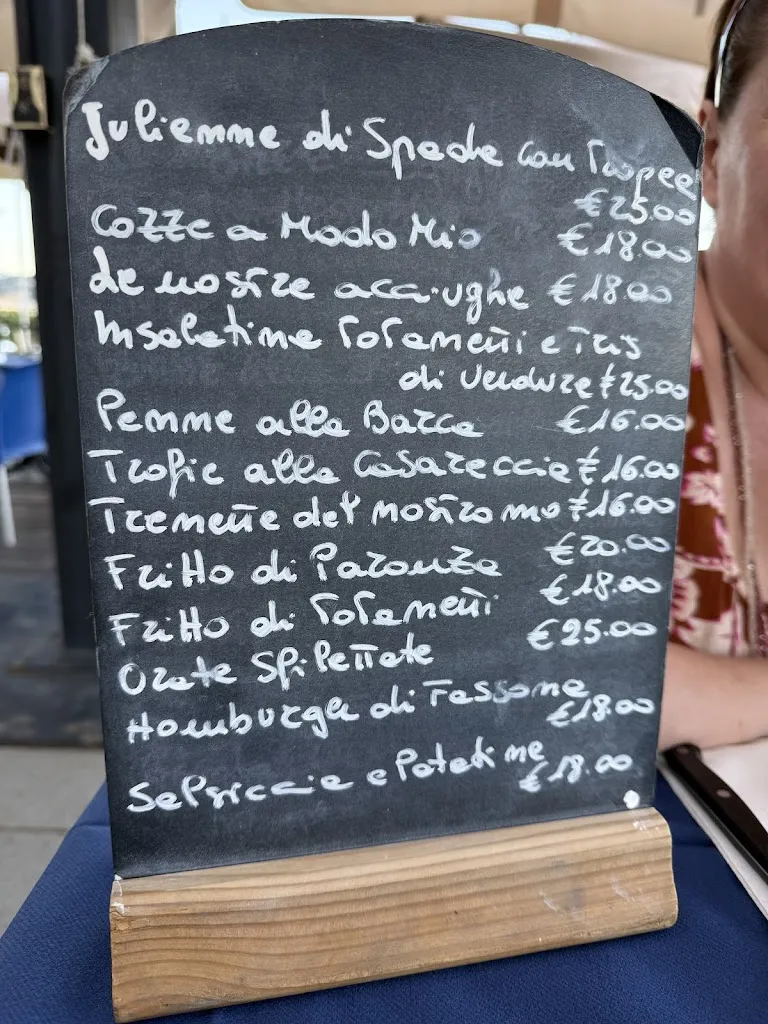 Julienne di Spada con Tropea
€25.00
Cozze a Modo Mio €18.00
Le nostre acciughe €18.00
Insalatina Totanetti e Tris
di Verdure €25.00
Penne alla Barca €16.00
Trofie alla Casareccia €16.00
Trenette del nostromo €16.00
Fritto di Paranza €20.00
Fritto di Totanetti €18.00
Orata Spilettata €25.00
Hamburger di Fassona
€18.00
Salsiccia e Patatine
€18.00